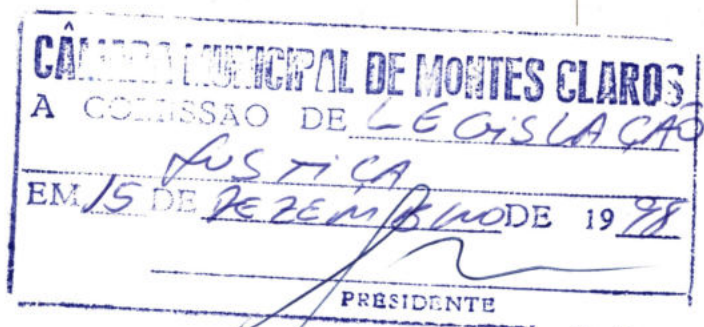 CÂMARA MUNICIPAL DE MONTES CLAROS
A COMISSAO DE LEGISLAÇÃO
JUSTIÇA
EM 15 DE DEZEMBRO DE 1998
PRESIDENTE